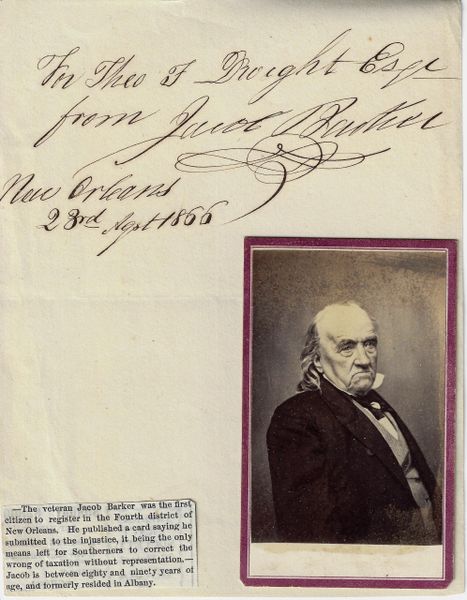 For Theo F Dwight Esqr
from Jacob Barker
New Orleans
23rd Agst 1866
—The veteran Jacob Barker was the first
citizen to register in the Fourth district of
New Orleans. He published a card saying he
submitted to the injustice, it being the only
means left for Southerners to correct the
wrong of taxation without representation.—
Jacob is between eighty and ninety years of
age, and formerly resided in Albany.